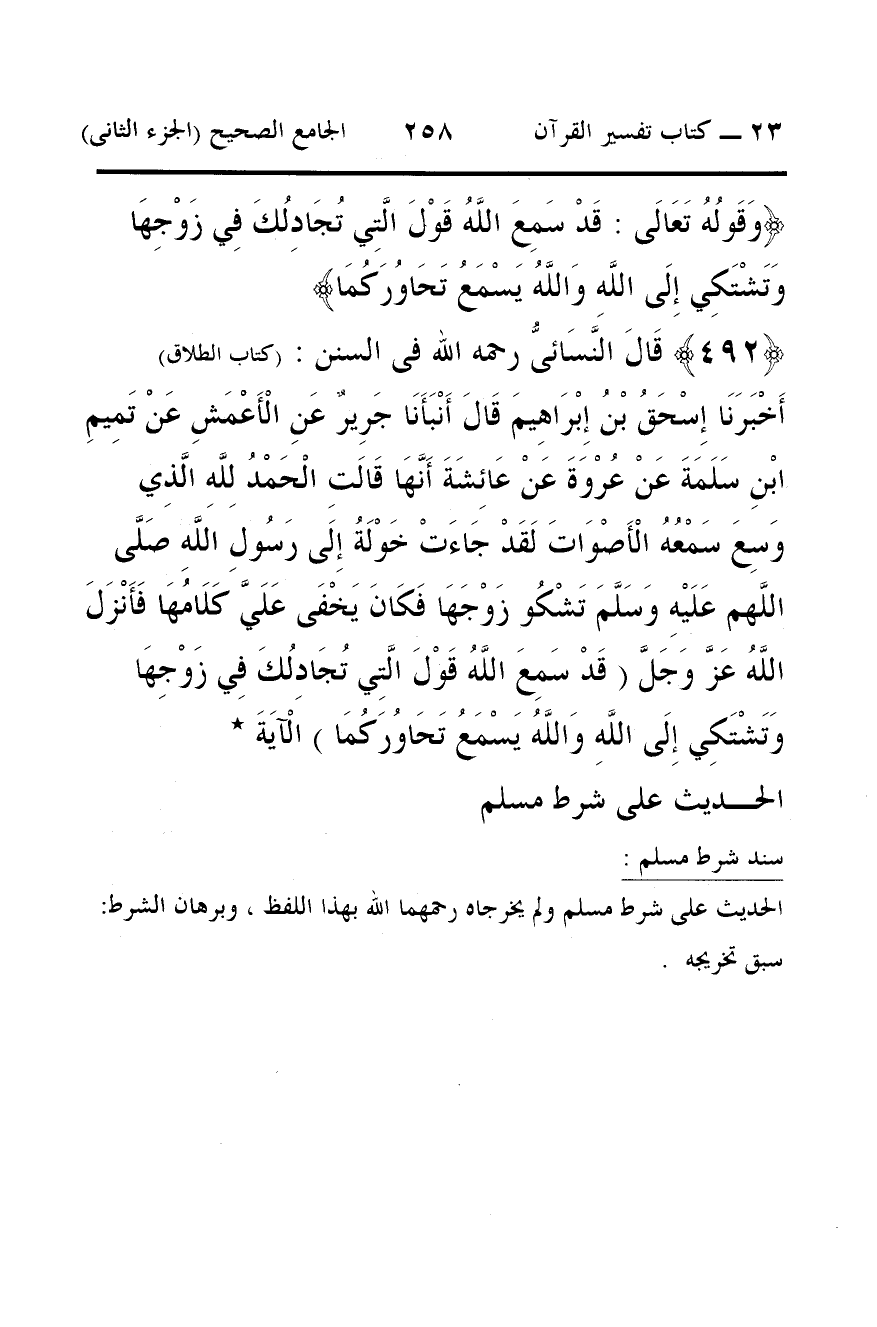 ٢٣ ــ كتاب تفسير القرآن ٢٥٨ الجامع الصحيح (الجزء الثانى)
﴿وَقَولُهُ تَعَالَى : قَدْ سَمِعَ اللَّهُ قَوْلَ الَّتِي تُجَادِلُكَ فِي زَوْجِهَا
وَتَشْتَكِي إِلَى اللَّهِ وَاللَّهُ يَسْمَعُ تَحَاوُرَكُمَا﴾
﴿٤٩٢﴾ قَالَ النَّسَائىُّ رحمه الله فى السنن : (كتاب الطلاق)
أَخْبَرَنَا إِسْحَقُ بْنُ إِبْرَاهِيمَ قَالَ أَنْبَأَنَا جَرِيرٌ عَنِ الْأَعْمَشِ عَنْ تَمِيمِ
ابْنِ سَلَمَةَ عَنْ عُرْوَةَ عَنْ عَائِشَةَ أَنَّهَا قَالَتِ الْحَمْدُ لِلَّهِ الَّذِي
وَسِعَ سَمْعُهُ الْأَصْوَاتَ لَقَدْ جَاءَتْ خَوْلَةُ إِلَى رَسُولِ اللَّهِ صَلَّى
اللَّهم عَلَيْهِ وَسَلَّمَ تَشْكُو زَوْجَهَا فَكَانَ يَخْفَى عَلَيَّ كَلَامُهَا فَأَنْزَلَ
اللَّهُ عَزَّ وَجَلَّ ( قَدْ سَمِعَ اللَّهُ قَوْلَ الَّتِي تُجَادِلُكَ فِي زَوْجِهَا
وَتَشْتَكِي إِلَى اللَّهِ وَاللَّهُ يَسْمَعُ تَحَاوُرَكُمَا ) الْآيَةَ *
الحـــديث على شرط مسلم
سند شرط مسلم :
الحديث على شرط مسلم ولم يخرجاه رحمهما الله بهذا اللفظ ، وبرهان الشرط:
سبق تخريجه .